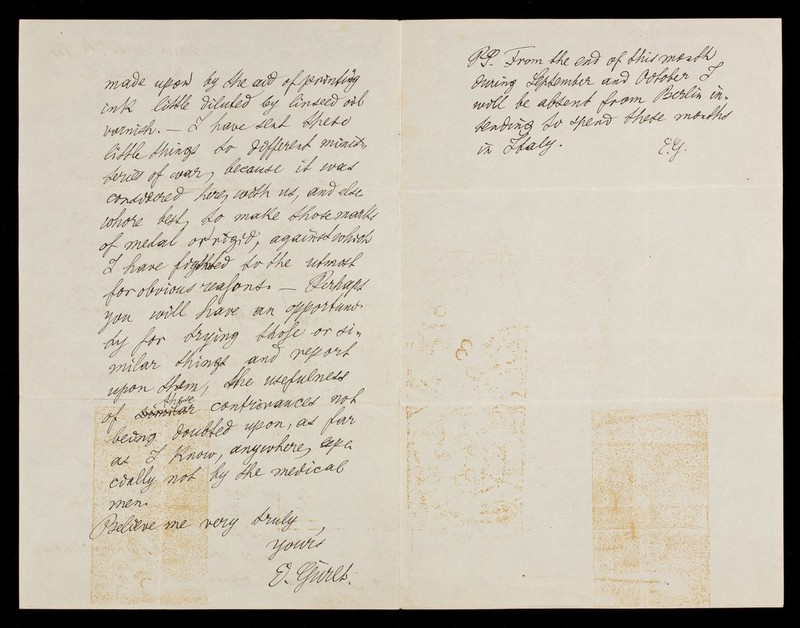 made upon by the aid of printing
ink little diluted by linseed oil
varnish. — I have sent these
little things to different minis-
teries of war, because it was
considered here, with us, and else
whore best, to make those marks
of medal or rigid, against which
I have fighted to the utmost
for obvious reasons. — Perhaps
you will have an opportuni-
ty for trying those or si-
milar things and report
upon them, the usefulness
of those contrivances not
being doubted upon, as far
as I know, anywhere, espe
cially not by the medical
men.
Believe me very truly
yours
E. Gurlt.
PS. From the end of this month
during September and October I
will be absent from Berlin in-
tending to spend these months
in Italy. E.G.